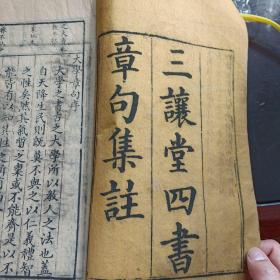 三讓堂四書
章句集註
大學章句序
大學之書古之大學所以教人之法也蓋
自天降生民則既莫不與之以仁義禮智
之性矣然其氣質之稟或不能齊是以不
能皆有以知其性之